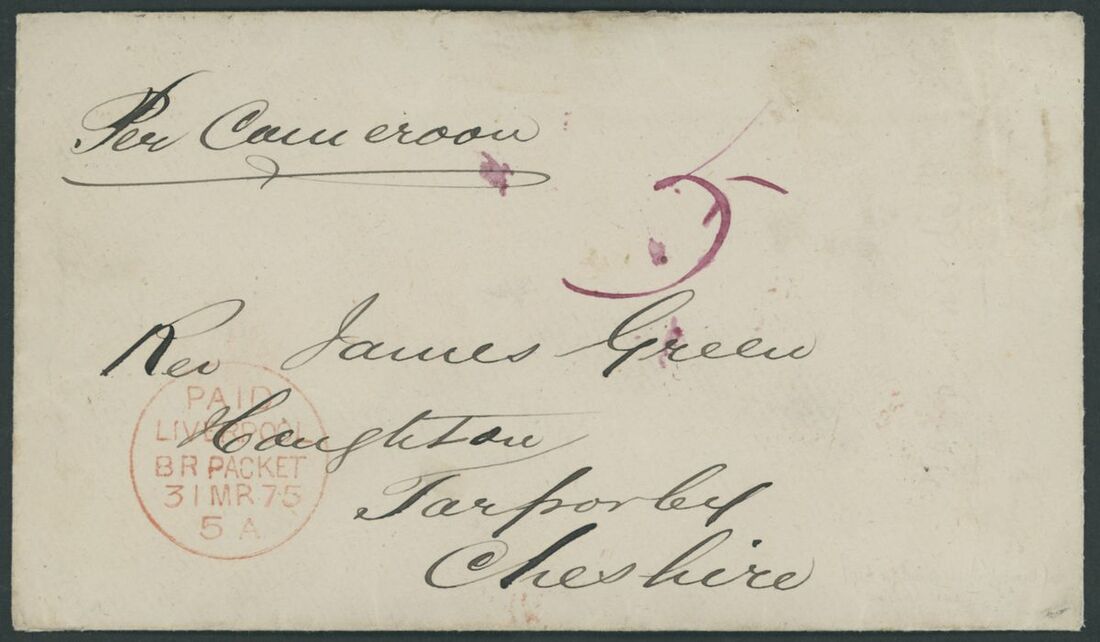 Per Cameroon
5
Rev James Green
Houghton
Tarporley
Cheshire
PAID
LIVERPOOL
BR PACKET
31 MR 75
5 A